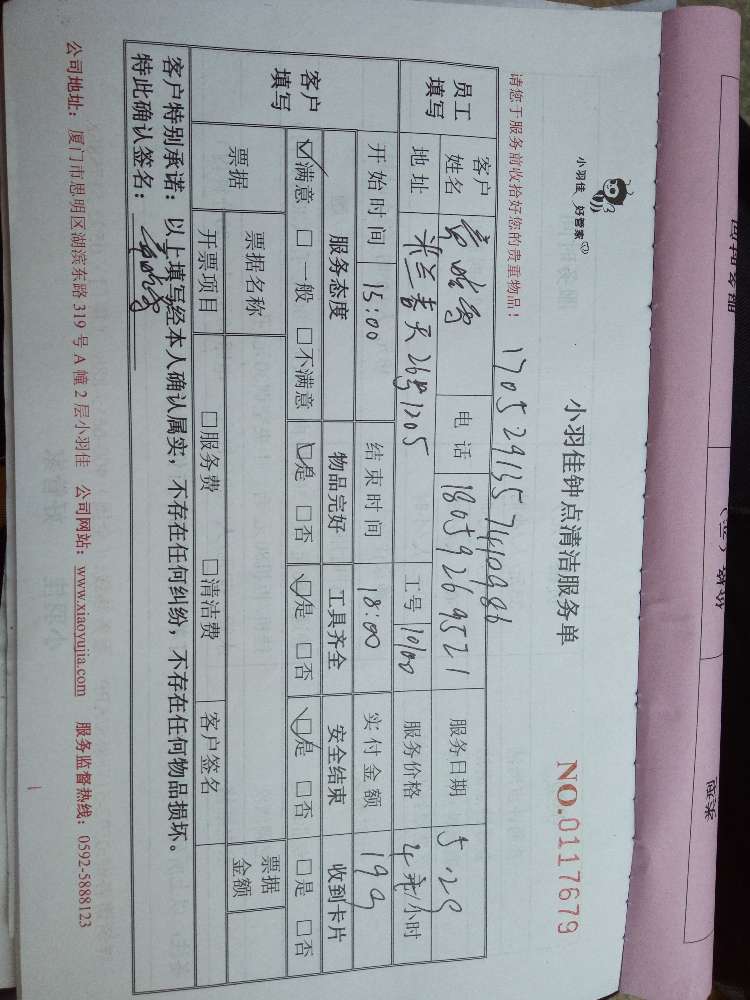 小羽佳 好管家
小羽佳钟点清洁服务单
NO.0117679
请您于服务前收拾好您的贵重物品！
员工填写 客户姓名 电话 18059269521 服务日期 5.29
地址 米兰春天26号1205 工号 10100 服务价格 元/小时
客户填写 开始时间 15:00 结束时间 18:00 实付金额 199
服务态度 物品完好 工具齐全 安全结束 收到卡片
☑满意 □一般 □不满意 ☑是 □否 ☑是 □否 ☑是 □否 □是 □否
票据 票据名称 票据金额
开票项目 □服务费 □清洁费 客户签名
客户特别承诺：以上填写经本人确认属实，不存在任何纠纷，不存在任何物品损坏。
特此确认签名：
公司地址：厦门市思明区湖滨东路 319 号 A 幢 2 层小羽佳 公司网站：www.xiaoyujia.com 服务监督热线：0592-5888123